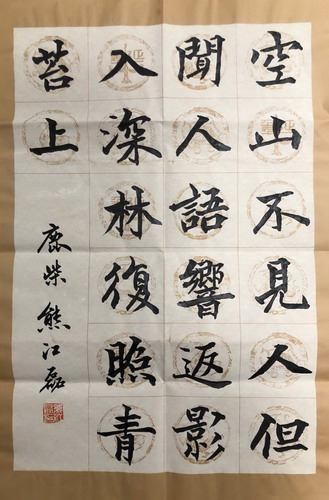 空山不見人但
聞人語響返影
入深林復照青
苔上
鹿柴熊江磊